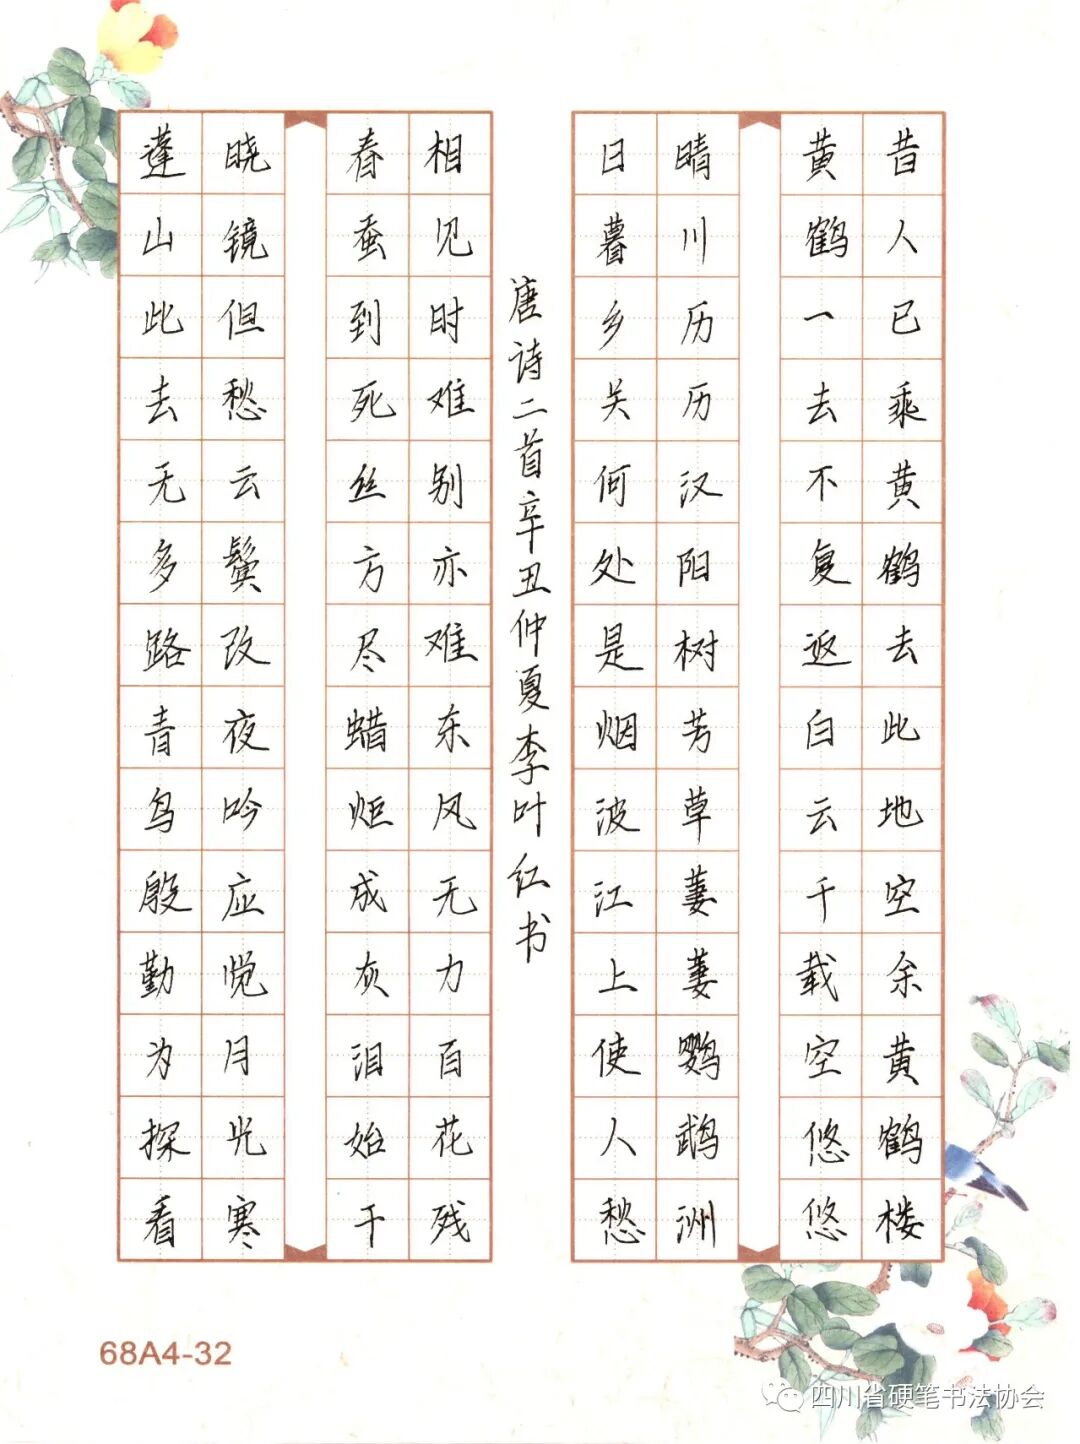 昔人已乘黄鹤去此地空余黄鹤楼
黄鹤一去不复返白云千载空悠悠
晴川历历汉阳树芳草萋萋鹦鹉洲
日暮乡关何处是烟波江上使人愁
唐诗二首辛丑仲夏李叶红书
相见时难别亦难东风无力百花残
春蚕到死丝方尽蜡炬成灰泪始干
晓镜但愁云鬓改夜吟应觉月光寒
蓬山此去无多路青鸟殷勤为探看
68A4-32
四川省硬笔书法协会